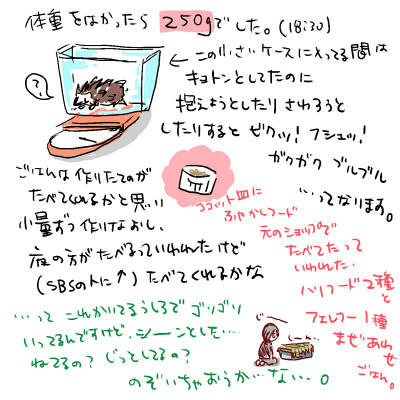 体重をはかったら 250gでした。(18:30)
?
← この小さいケースに入ってる間は
キョトンとしてたのに
抱えようとしたり さわろうと
したりすると ビクッ! フシュッ!
ガクガク ブルブル
…ってなります。
ごはんは作りたてのが
たべてくれるかと思い
少量ずつ作りなおし、
夜の方がたべるっていわれたけど
(SBSの下に↑)たべてくれるかな
ココット皿に
ふやかしフード
元のショップで
たべてたって
いわれた。
ハリフード2種
と
フェレフー1種
まぜあわせ
ごはん。
…って これかいてるうしろで ゴソゴソ
いってるんですけど、シーンとした…
ねてるの? じっとしてるの?
のぞいちゃおうか…な…。